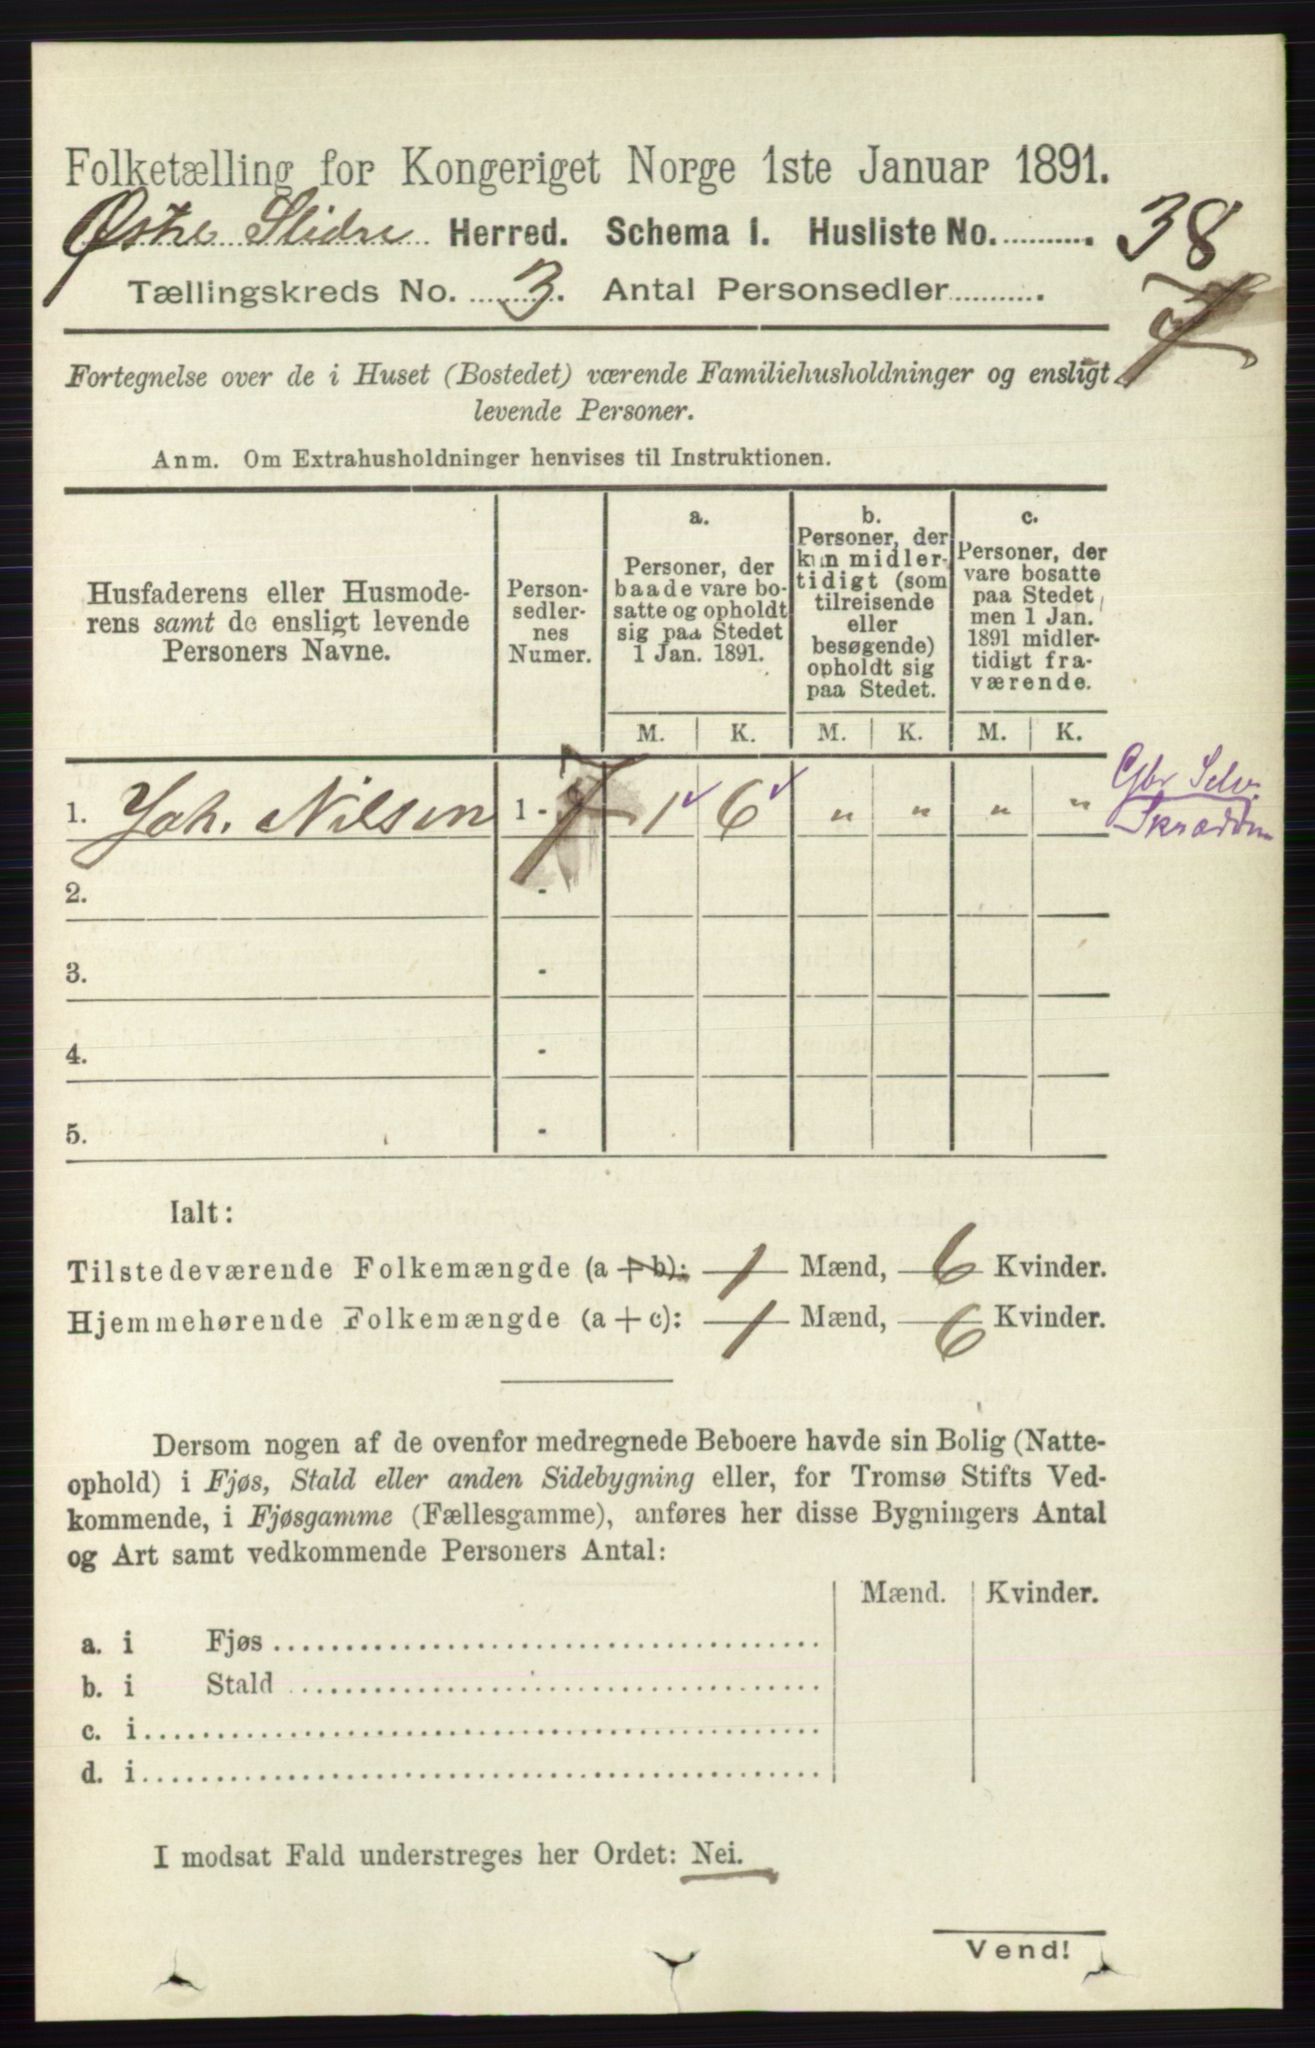 Folketælling for Kongeriget Norge 1ste Januar 1891.
Østre Slidre Herred. Schema 1. Husliste No. 38
Tællingskreds No. 3. Antal Personsedler 7
Fortegnelse over de i Huset (Bostedet) værende Familiehusholdninger og ensligt
levende Personer.
Anm. Om Extrahusholdninger henvises til Instruktionen.
Husfaderens eller Husmode-
rens samt de ensligt levende
Personers Navne.
Person-
sedler-
nes
Numer.
a.
Personer, der
baade vare bo-
satte og opholdt
sig paa Stedet
1 Jan. 1891.
b.
Personer, der
kun midler-
tidigt (som
tilreisende
eller
besøgende)
opholdt sig
paa Stedet.
c.
Personer, der
vare bosatte
paa Stedet,
men 1 Jan.
1891 midler-
tidigt fra-
værende.
M. K. M. K. M. K.
1. Joh. Nilsen 1 - 7 1 6 " " " " Gbr Selv.
2. -
3. -
4. -
5. -
Ialt:
Tilstedeværende Folkemængde (a + b): 1 Mænd, 6 Kvinder.
Hjemmehørende Folkemængde (a + c): 1 Mænd, 6 Kvinder.
Dersom nogen af de ovenfor medregnede Beboere havde sin Bolig (Natte-
ophold) i Fjøs, Stald eller anden Sidebygning eller, for Tromsø Stifts Ved-
kommende, i Fjøsgamme (Fællesgamme), anføres her disse Bygningers Antal
og Art samt vedkommende Personers Antal:
Mænd. Kvinder.
a. i Fjøs
b. i Stald
c. i
d. i
I modsat Fald understreges her Ordet: Nei.
Vend!